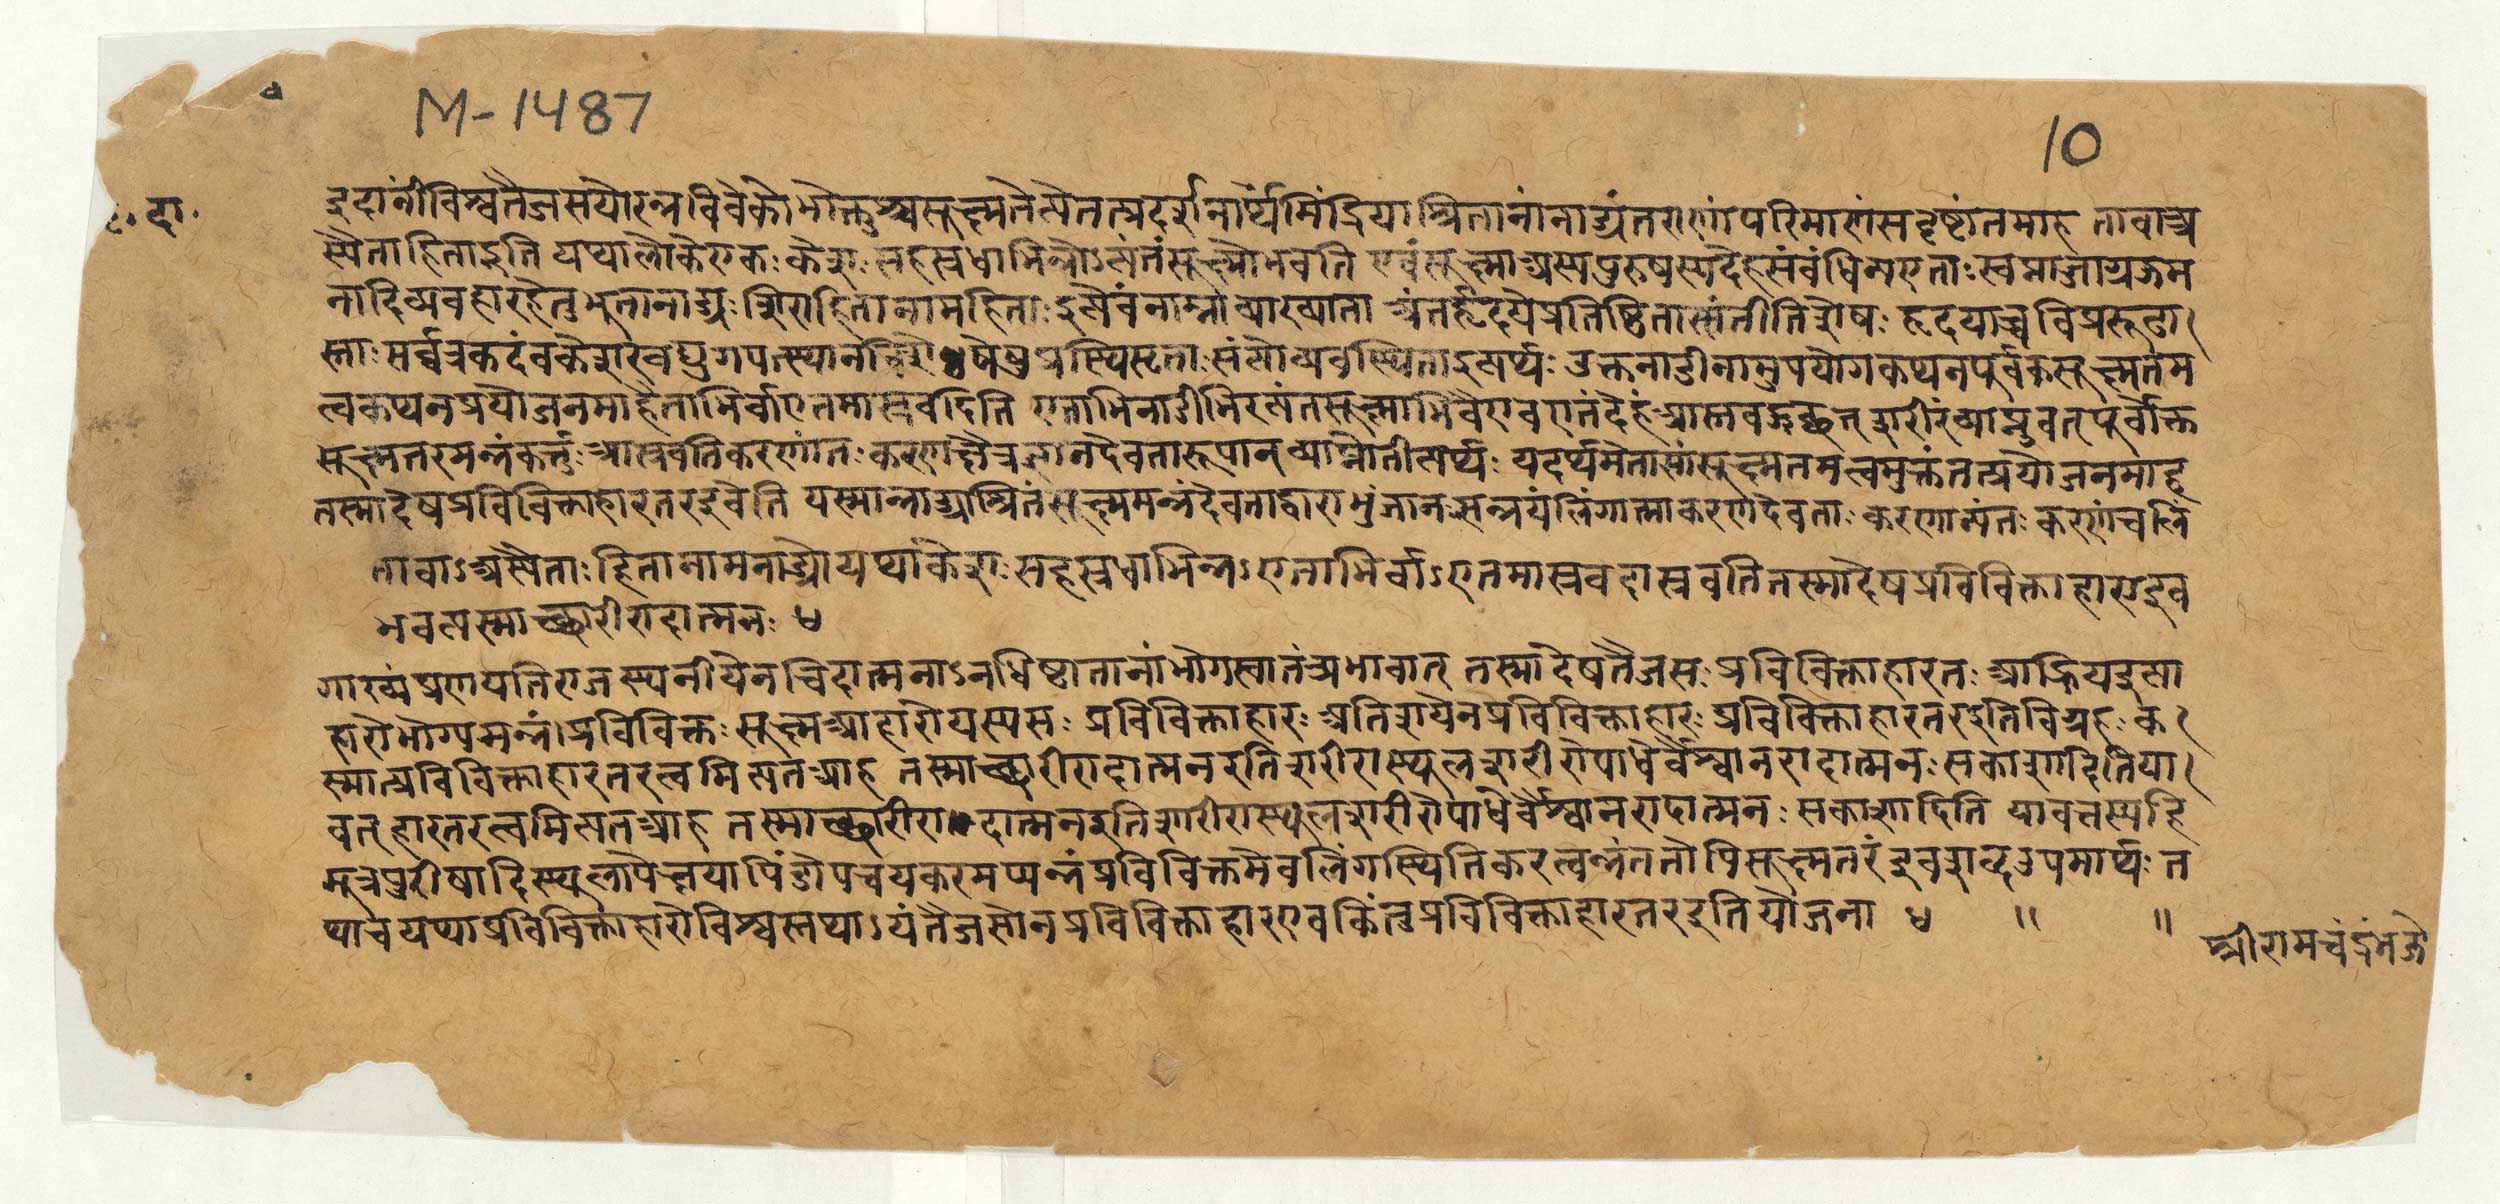 M-1487
10
दा.
इदानींविश्वतैजसयोरन्नविवेकोभोक्तुश्चसूक्ष्मतेत्येतत्प्रदर्शनार्थमिंद्रियाश्रितानांनाड्यंतराणांपरिमाणंसदृष्टांतमाह तावाअ
स्यैताहिताइति यथालोकेएकःकेशःसहस्रधाभिन्नोऽत्यंतंसूक्ष्मोभवति एवंसूक्ष्माअस्यपुरुषस्यदेहसंबंधिन्यएताःस्वप्नाजाग्रजम
नादिव्यवहारहेतुभूतानाड्यःशिराहितानामहिताःइत्येवंनाम्नाव्याख्याता अंतर्हृदयेप्रतिष्ठितासंतीतिशेषः हृदयाच्चविप्ररूढा
स्ताःसर्वत्रकदंबकेशरवद्युगपत्स्थान षेषुपरस्थिस्टताःसंत्योव्यवस्थिताइत्यर्थः उक्तनाडीनामुपयोगकथनपूर्वकसूक्ष्मतम
त्वकथनप्रयोजनमाहैताभिर्वाएतमास्रवदिति एताभिर्नाडीभिरत्यंतसूक्ष्माभिर्वैएवएतंदेहंआस्रवद्गच्छत् शरीरंव्याप्नुवत् पूर्वोक्त
सूक्ष्मतरमन्नंकर्तृःआस्रवतिकरणांतःकरणक्षेत्रज्ञानदेवतारूपान् व्याप्नोतीत्यर्थः यदर्थमेतासांसूक्ष्मतमत्वमुक्तंतत्प्रयोजनमाह
तस्मादेषप्रविविक्ताहारतरइवेति यस्मान्नाड्याश्रितंसूक्ष्ममन्नंदेवताद्वाराभुंजानःसन्नयंलिंगात्माकरणदेवताःकरणान्यंतःकरणंचलिं
तावाऽअस्यैताःहितानामनाड्योयथाकेशःसहस्रधाभिन्नऽएताभिर्वाऽएतमास्रवदास्रवतितस्मादेषप्रविविक्ताहारइव
भवत्यस्माच्छारीरादात्मनः ४
गाख्यंप्रणयतिराजस्थनीयेनचिदात्मनाऽनधिष्टातानांभोगस्वातंत्र्यभावात् तस्मादेषतैजसः प्रविविक्ताहारतः आह्रियइत्या
हारोभोग्यमन्नं।प्रविविक्तः सूक्ष्मआहारोयस्यसः प्रविविक्ताहारः अतिशयेनप्रविविक्ताहारः प्रविविक्ताहारतरइतिविग्रहः क
स्मात्प्रविविक्ताहारतरत्वमित्यतआह तस्माच्छारीरादात्मनइतिशरीरास्थूलशरीरोपाधेर्वैश्वानरादात्मनःसकाशादितिया
वत् हारतरत्वमित्यतआह तस्माच्छारीरा दात्मनइतिशरीरास्थूलशरीरोपाधेर्वैश्वानरादात्मनः सकाशादिति यावत्तस्यहि
मूत्रपुरीषादिस्थूलापेक्षयापिंडोपचयकरमप्यन्नंप्रविविक्तमेवलिंगस्थितिकरत्वन्नंततोपिसूक्ष्मतरं इवशब्दउपमार्थः त
थाचयथाप्रविविक्ताहारोविश्वस्तथाऽयंतैजसोनप्रविविक्ताहारएवकिंतुप्रविविक्ताहारतरइतियोजना ४ ॥ ॥
श्रीरामचंद्रंभजे